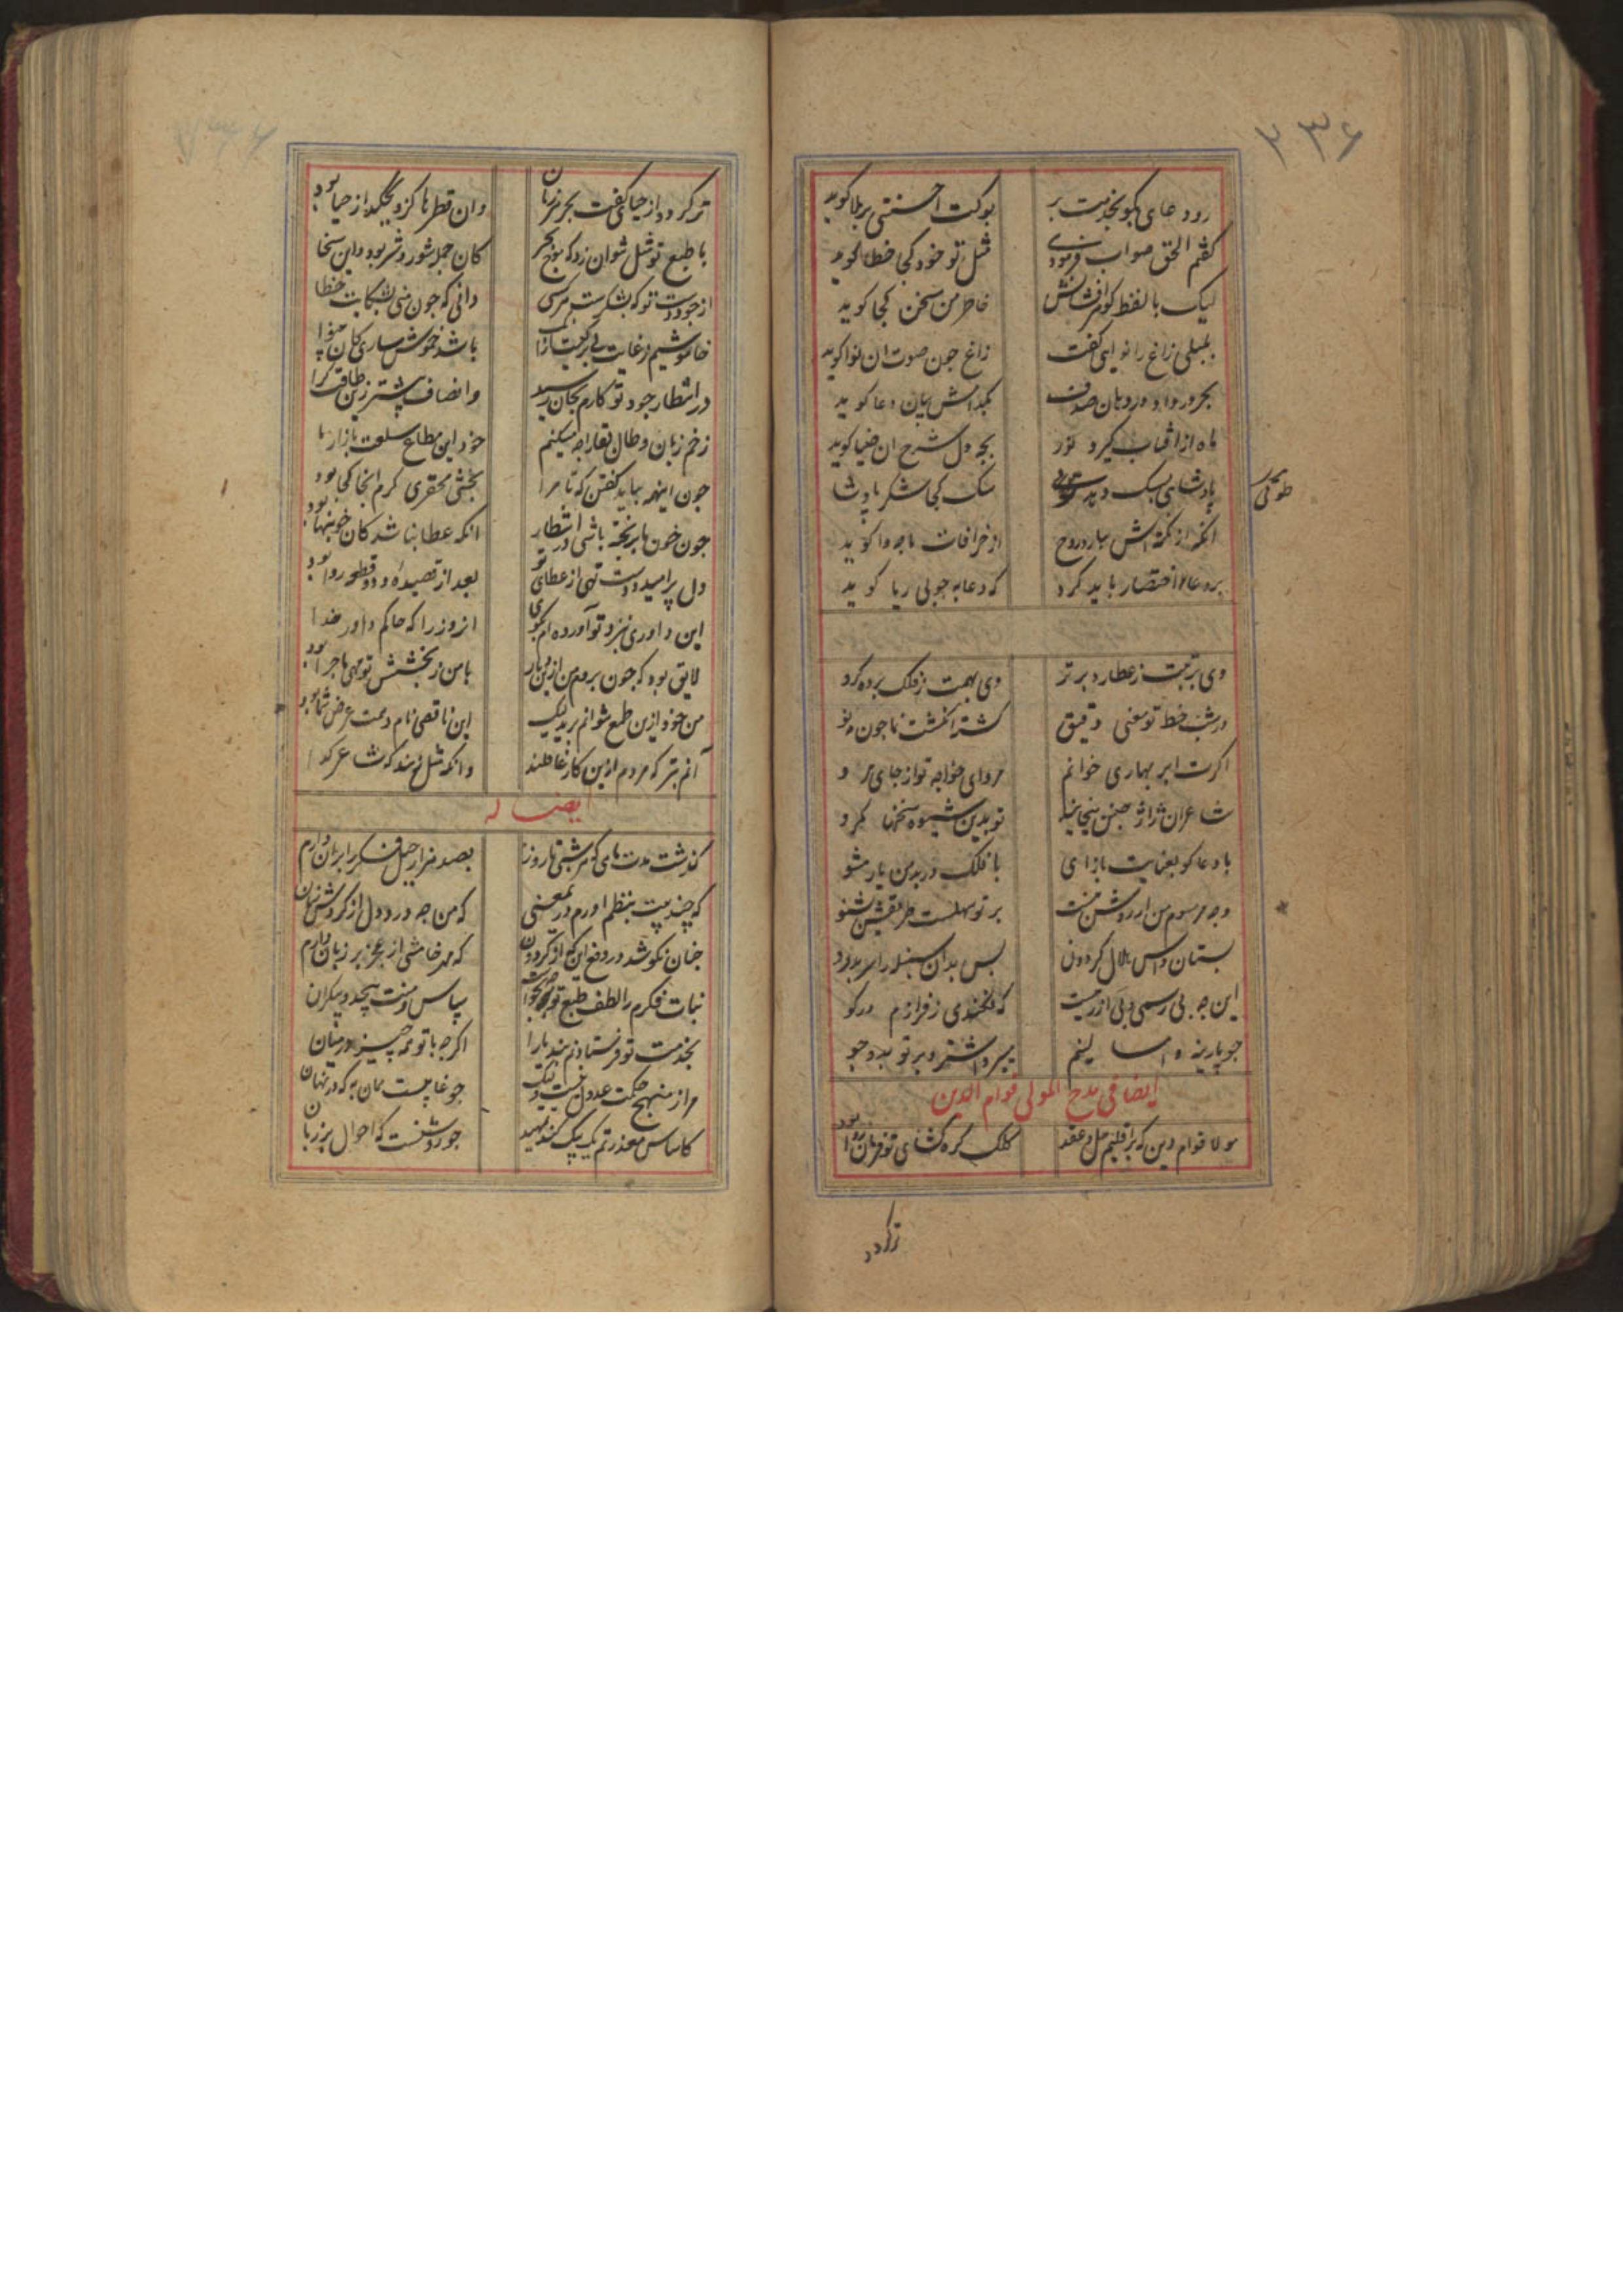 ۲۳۶
رو دعای بکو بخدمت بر بوکت احسنتی برملا کوید
کفتم الحق صواب فرمودی مثل تو خود کجا خطا کوید
لیک با لفظ کوهر افشانش خاطر من سخن کجا کوید
بلبلی زاغ را نوایی کفت زاغ چون صوت ان نوا کوید
بحر در داد در دهان صدف بکدامش بیان دعا کوید
ماه از افتاب کیرد نور بچه دل شرح ان ضیا کوید
پادشاهی بسک دهد سک کجا شکر پادشا
طوقی
انکه از نکته اش ببارد روح از خرافات ما چه وا کوید
بر دعا اختصار باید کرد که دعا به چو بی ریا کوید
وی برتبت ز عطارد برتر وی بهمت ز فلک برده کرو
در شب خط تو معنی دقیق کشته انکشت نما چون مه نو
اکرت ابر بهاری خوانم مرو ای خواجه تو از جای مرو
شاعران ژاژ چنین میخایند تو بدین شیوه سخنها مکرو
با دعاکو بعنایت باز ای با فلک در بد من یار مشو
وجه مرسوم من از روشن نیست بر تو سهلست طریقش بشنو
بستان داس هلال کردونی بس بدان سنبله را سر بدرو
این چه بی رسمی و بی ازرمیست
چو پارینه و امسالینم
ایضا فی مدح المولی قوام الدین
مولا قوام دین که بر اقلیم حل و عقد کلک کره کشای تو فرمان روا بود
تر کردد
تر کردد از حیا کفت بحر هر زمان وان قطرها کزو بچکد از حیا بود
با طبع تو مثل نتوان زد که موج بحر کان جمله شور و شر بود و این سخا
از جود دست تو که بشکرست هر کسی دانی که چون منی بشکایت خطا
خاموشیم ز غایت بی برکیست از باشد خموش ساری کان بینوا
در انتظار جود تو کارم بجان رسید و انصاف بیشتر زین طاقت کرا
زخم زبان و طال بقا را چه میکنم خود این مطاع سلعت بازارها
چون اینهمه بباید کفتن که تا مرا بخشی محقری کرم انجا کجا بود
چون خونها بریخته باشی در انتظار انکه عطا نباشد کان خونبها بود
دل پر امید و دست تهی از عطای تو بعد از قصیده و دو قطعه روا بود
این داوری بنزد تو آورده ام بکوی از وزرا که حاکم داور خدا
لایق بود که چون بروم من ازین دیار با من ز بخشش تو همی ماجرا بود
من خود ازین طمع بتوانم برید لیک این ناقصی نام و سمت عرض شما بود
آنم بتر که مردم ازین کار غافلند وانکه مثل زنند که شاعر کدا
ایضا له
کذشت مدت ماهی که هر شبی تا روز بصد هزار حیل فکر را بران دارم
که چند بیت بنظم اورم در معنی که من چه درد دل از کردش زمان
چنان نکوشد در دفع ان که از کردون که مهر خامشی از عجز بر زبان دارم
نبات فکرم را لطف طبع تو سپاس و منت بیحد و بیکران
بخدمت تو فرستادنم اکرچه با تو همه چیز در میان
مرا ز منهج حکمت عدول نیست ولیک
کاساس معذرتم یک بیک کند تمهید چو روشنست که احوال بر زبان